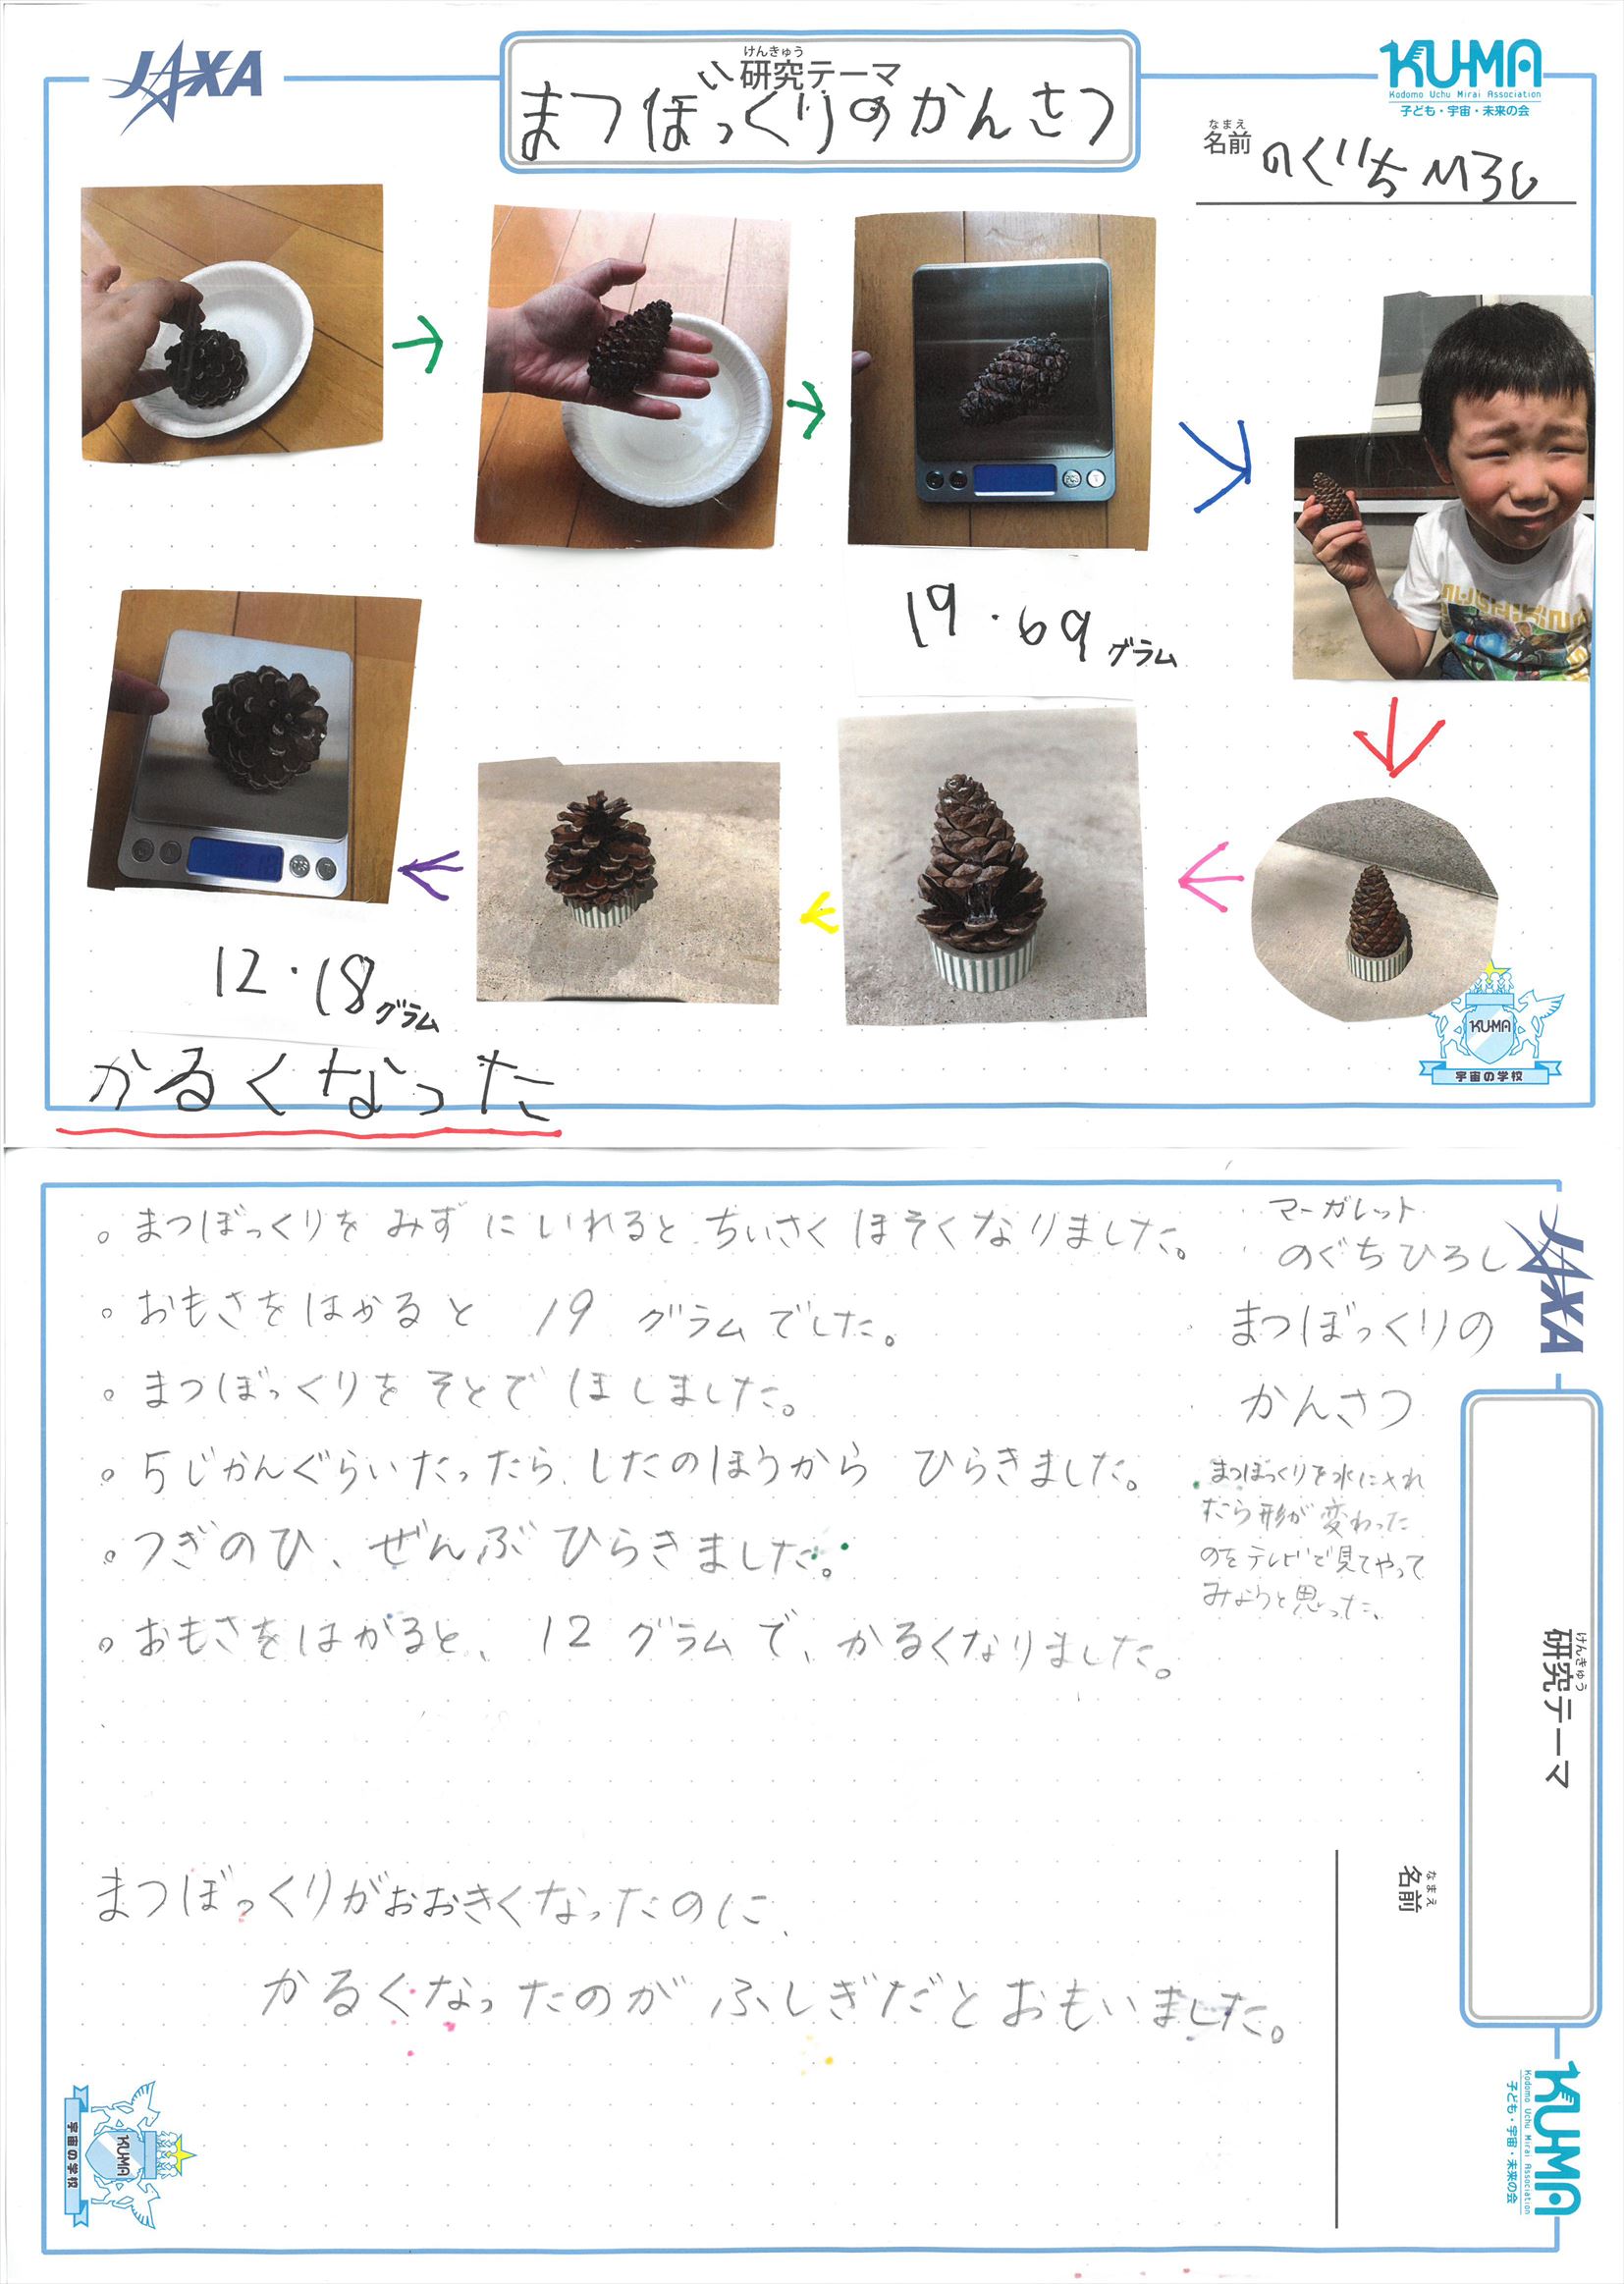 JAXA
けんきゅう
研究テーマ
まつぼっくりのかんさつ
KU-MA
Kodomo Uchu Mirai Association
子ども・宇宙・未来の会
なまえ
名前
のぐちひろし
19.69グラム
12.18グラム
かるくなった
KU-MA
宇宙の学校
。まつぼっくりを みずにいれると ちいさく ほそくなりました。
。おもさをはかると 19 グラムでした。
。まつぼっくりを そとで ほしました。
。5じかんぐらいたったら、したのほうから ひらきました。
。つぎのひ、ぜんぶひらきました。
。おもさをはかると、12グラムで、かるくなりました。
まつぼっくりがおおきくなったのに、
かるくなったのが ふしぎだとおもいました。
マーガレット
のぐちひろし
まつぼっくりの
かんさつ
まつぼっくりを水に入れ
たら形が変わった
のをテレビで見てやって
みようと思った。
JAXA
けんきゅう
研究テーマ
なまえ
名前
KU-MA
Kodomo Uchu Mirai Association
子ども・宇宙・未来の会
KU-MA
宇宙の学校